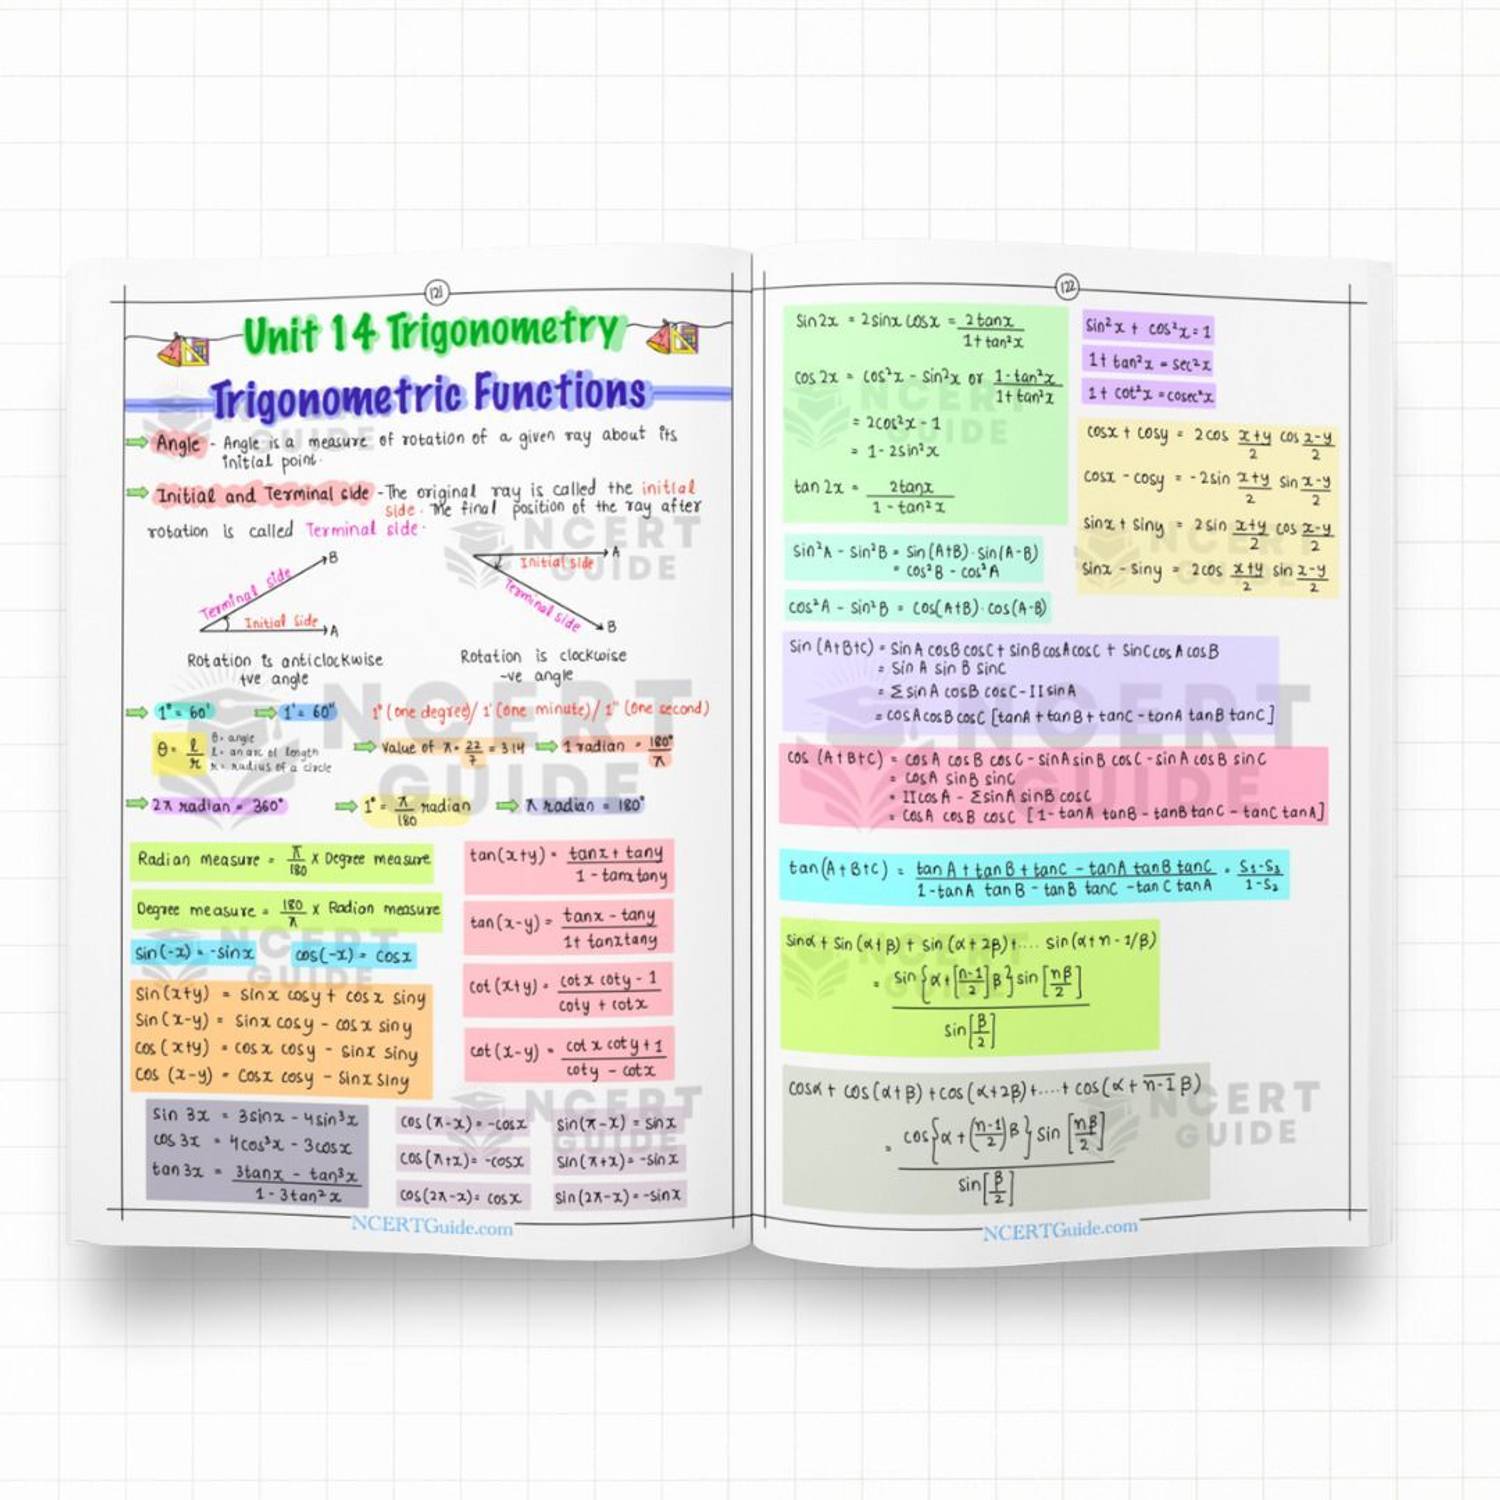 121
Unit 14 Trigonometry
Trigonometric Functions
⇒ Angle - Angle is a measure of rotation of a given ray about its
initial point.
⇒ Initial and Terminal side - The original ray is called the initial
side. The final position of the ray after
rotation is called Terminal side.
Terminal side B
Initial side A
Rotation is anticlockwise
+ve angle
Initial side A
Terminal side B
Rotation is clockwise
-ve angle
⇒ 1° = 60' ⇒ 1' = 60" 1° (one degree)/ 1' (one minute)/ 1" (one second)
θ = l/r θ = angle
l = an arc of length
r = radius of a circle
⇒ Value of π = 22/7 = 3.14 ⇒ 1 radian = 180°/π
⇒ 2π radian = 360° ⇒ 1° = π/180 radian ⇒ π radian = 180°
Radian measure = π/180 × Degree measure
Degree measure = 180/π × Radion measure
sin(-x) = -sinx cos(-x) = cosx
Sin(x+y) = sinx cosy + cosx siny
Sin(x-y) = sinx cosy - cosx siny
cos(x+y) = cosx cosy - sinx siny
cos (x-y) = cosx cosy - sinx siny
tan(x+y) = tanx + tany / 1 - tanx tany
tan(x-y) = tanx - tany / 1 + tanx tany
cot(x+y) = cotx coty - 1 / coty + cotx
cot(x-y) = cotx coty + 1 / coty - cotx
sin 3x = 3sinx - 4sin³x
cos 3x = 4cos³x - 3cosx
tan 3x = 3tanx - tan³x / 1 - 3tan²x
cos(π-x) = -cosx sin(π-x) = sinx
cos(π+x) = -cosx sin(π+x) = -sinx
cos(2π-x) = cosx sin(2π-x) = -sinx
NCERTGuide.com
122
Sin2x = 2sinx cosx = 2tanx / 1+tan²x
cos 2x = cos²x - sin²x or 1-tan²x / 1+tan²x
= 2cos²x - 1
= 1 - 2sin²x
tan 2x = 2tanx / 1 - tan²x
sin²x + cos²x = 1
1 + tan²x = sec²x
1 + cot²x = cosec²x
cosx + cosy = 2cos x+y/2 cos x-y/2
cosx - cosy = -2sin x+y/2 sin x-y/2
sinx + siny = 2sin x+y/2 cos x-y/2
sinx - siny = 2cos x+y/2 sin x-y/2
sin²A - sin²B = sin(A+B) · sin(A-B)
= cos²B - cos²A
cos²A - sin²B = cos(A+B) · cos(A-B)
sin (A+B+C) = sinA cosB cosC + sinB cosA cosC + sinC cosA cosB
= sin A sin B sinC
= Σ sinA cosB cosC - ΠsinA
= cosA cosB cosC [tanA + tanB + tanC - tanA tanB tanC]
cos (A+B+C) = cosA cosB cosC - sinA sinB cosC - sinA cosB sinC
= cosA sinB sinC
= ΠcosA - ΣsinA sinB cosC
= cosA cosB cosC [1 - tanA tanB - tanB tanC - tanC tanA]
tan(A+B+C) = tanA + tanB + tanC - tanA tanB tanC / 1 - tanA tanB - tanB tanC - tanC tanA = S₁-S₃ / 1-S₂
Sinα + sin(α+β) + sin(α+2β) + .... sin(α+n-1/β)
= sin{α+[n-1/2]β} sin[nβ/2] / sin[β/2]
cosα + cos(α+β) + cos(α+2β) + .... + cos(α + n-1 β)
= cos{α+(n-1/2)β} sin[nβ/2] / sin[β/2]
NCERTGuide.com
NCERT
GUIDE